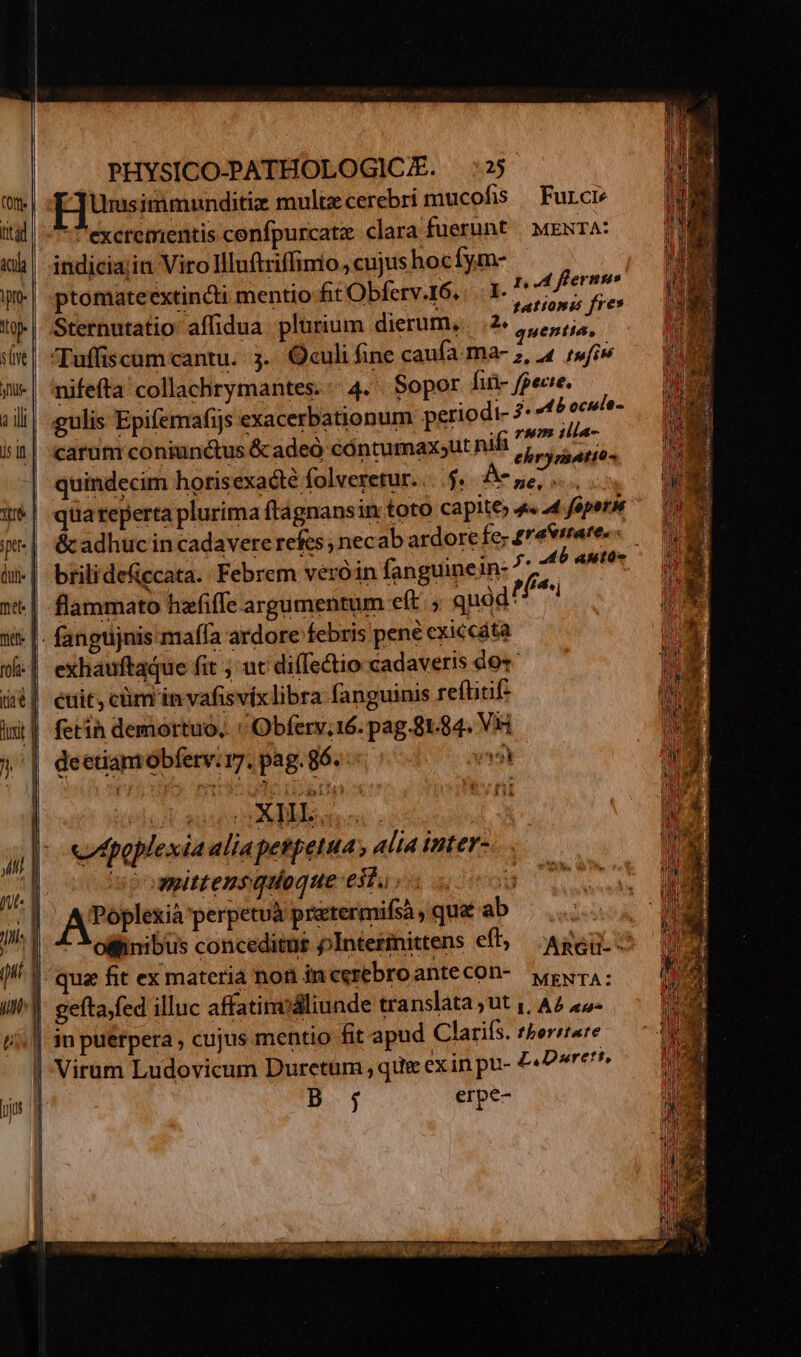 PHYSICO-PATHOLOGICÆ. 25
HUjusimmunditiæ multæ cerebri mucosis
excrementis conspurcatæ clara fuerunt
indicia, in Viro Illustrissimo, cujus hoc sym-
ptomate extincti mentio fit Observ. 16. 1.
Sternutatio assidua plurium dierum, 2.
Tussis cum cantu. 3. Oculi sine causa ma-
nifesta collachrymantes. 4. Sopor sin-
gulis Epifemasijs exacerbationum periodi-
carum coniunctus & adeò contumax, ut nisi
quindecim horis exactè solveretur. 5. A-
qua reperta plurima stagnans in toto capite,
& adhuc in cadavere refes, nec ab ardore fe-
brili desiccata. Febrem verò in sanguine in-
flammato hæsisse argumentum est, quòd
sanguinis massa ardore febris penè exiccata
exhaustaque sit, ut dissectio cadaveris do-
cuit, cùm in vasis vix libra sanguinis restitis-
set in demortuo. Observ. 16. pag. 81. 84. Vi
de etiam observ. 17. pag. 86.
FURCIE
MENTA:
1. A sternu-
tationis fre-
quentia,
2, A tussis
specie.
3. Ab oculo-
rum illa-
chrymatio-
ne,
4. A soporis
gravitate.
5. Ab auto-
psia.
XIII.
Apoplexia alia perpetua, alia inter-
mittens quoque est.
APoplexià perpetuà prætermissà, quæ ab
omnibus conceditur, Intermittens est,
quæ fit ex materia non in cerebro ante con-
gesta, sed illuc affatim aliunde translata, ut
in puerpera, cujus mentio fit apud Clariss.
Virum Ludovicum Duretum, quæ ex in pu-
ARGU-
MENTA:
1, Ab au-
thoritate
L. Dureti,
B 5 erpe-